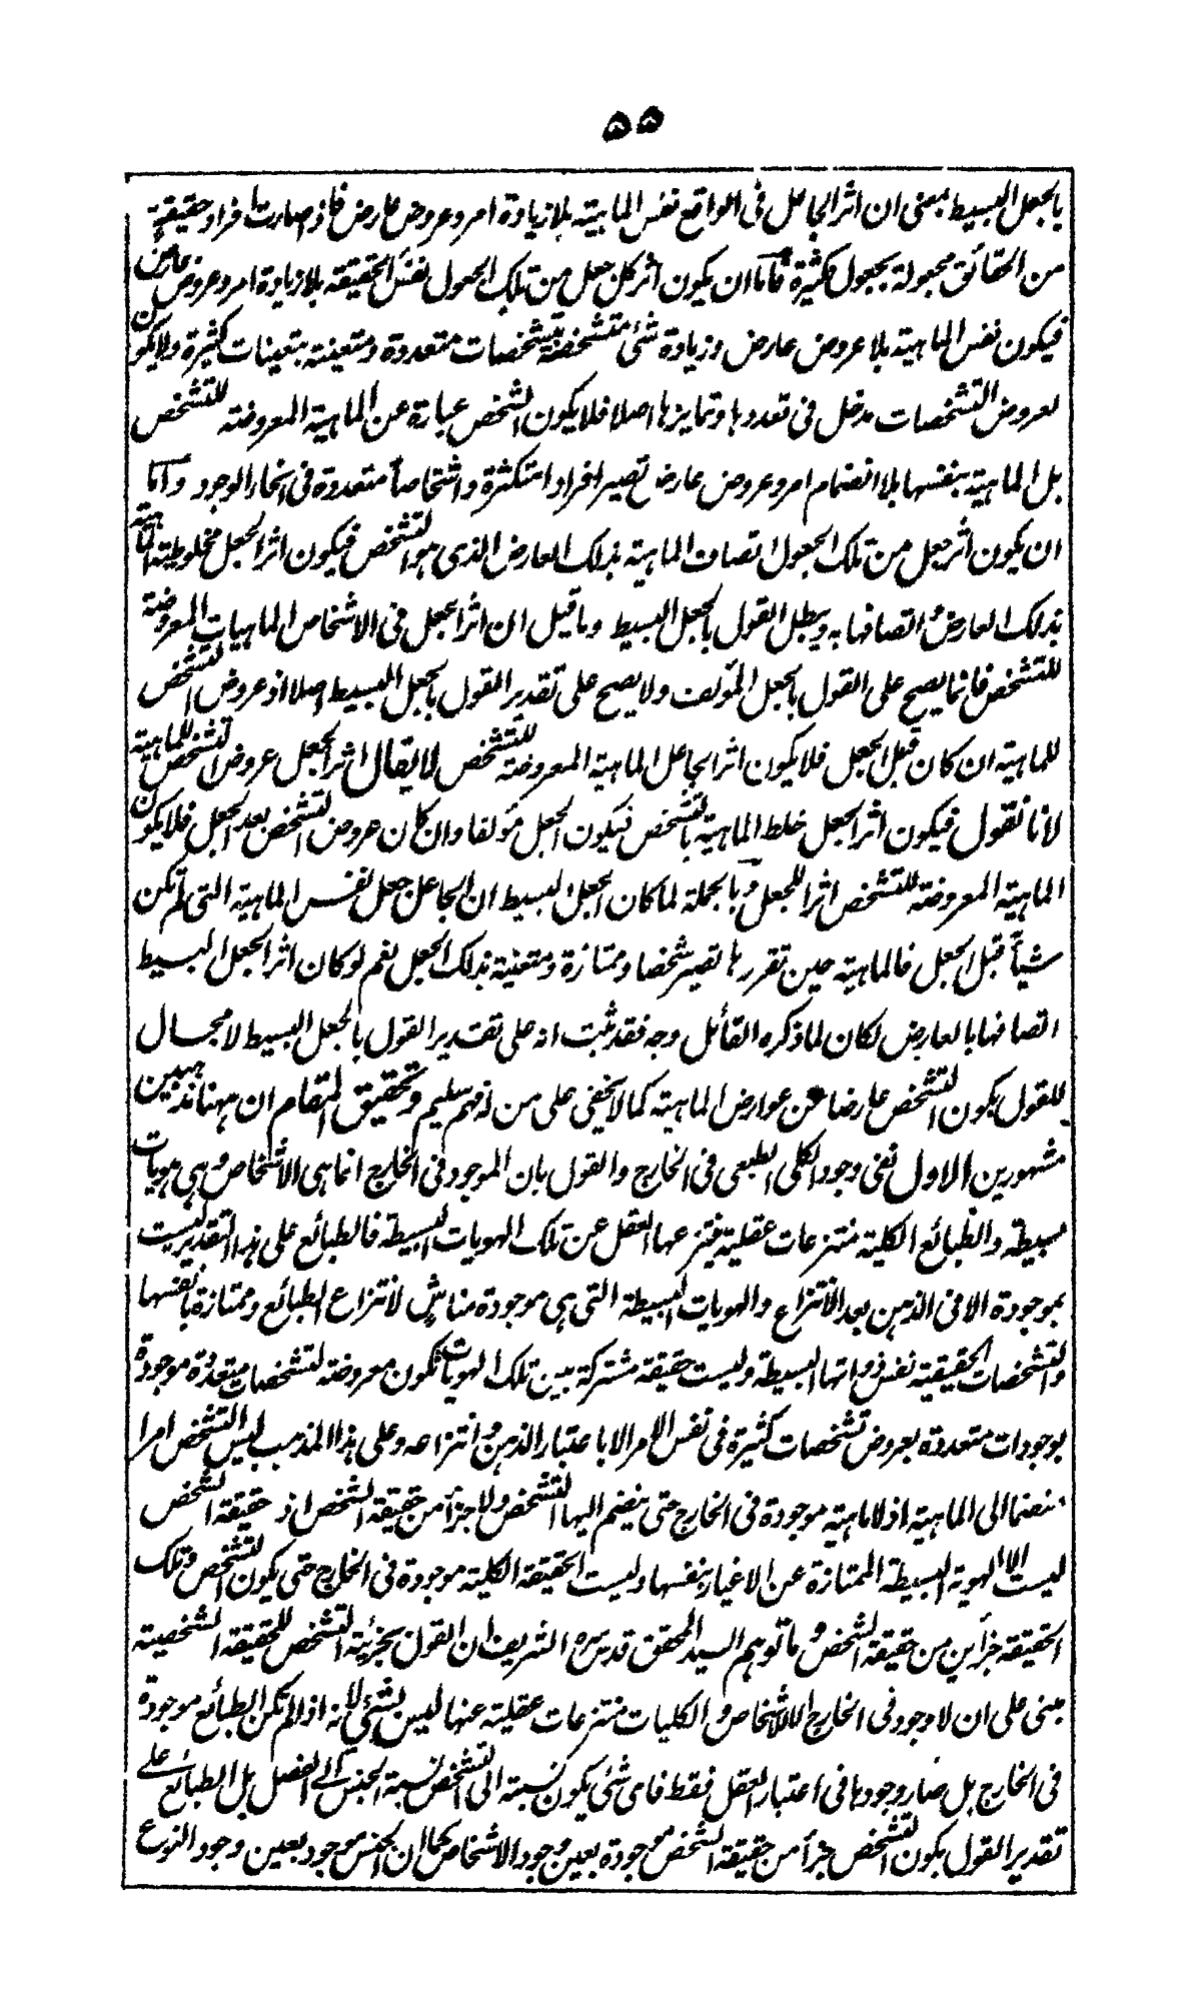 ۵۵
بالجعل البسيط بمعنى ان اثر الجاعل فى الواقع نفس الماهية بلا زيادة امر وعروض عارض فاذ صارت افراد حقيقة
من الحقائق مجعولة بجعول كثيرة فاما ان يكون اثر كل جعل من تلك الجعول نفس الحقيقة بلا زيادة امر وعروض عارض
فيكون نفس الماهية بلا عروض عارض وزيادة شئ متشخصة بتشخصات متعددة ومتعينة بتعينات كثيرة ولا يكون
لعروض التشخصات مدخل فى تعددها وتمايزها اصلا فلا يكون الشخص عبارة عن الماهية المعروضة للتشخص
بل الماهية بنفسها بلا انضمام امر وعروض عارض تصير افرادا متكثرة واشخاصاً متعددة فى انحاء الوجود واما
ان يكون اثر جعل من تلك الجعول اتصاف الماهية بذلك العارض الذى هو التشخص فيكون اثر الجعل مخلوطية الماهية
بذلك العارض واتصافها به ويبطل القول بالجعل البسيط وما قيل ان اثر الجعل فى الاشخاص الماهيات المعروضة
للتشخص فانما يصح على القول بالجعل المؤلف ولا يصح على تقدير القول بالجعل البسيط اصلا اذ عروض التشخص
للماهية ان كان قبل الجعل فلا يكون اثر الجاعل الماهية المعروضة للتشخص لا يقال اثر الجعل عروض التشخص للماهية
لانا نقول فيكون اثر الجعل خلط الماهية بالتشخص فيكون الجعل مؤلفا وان كان عروض التشخص بعد الجعل فلا يكون
الماهية المعروضة للتشخص اثرا للجعل وبالجملة لما كان الجعل البسيط ان الجاعل جعل نفس الماهية التى لم تكن
شيأ قبل الجعل فالماهية حين تقررها تصير شخصا وممتازة ومتعينة بذلك الجعل نعم لو كان اثر الجعل البسيط
اتصافها بالعارض لكان لما ذكره القائل وجه فقد ثبت انه على تقدير القول بالجعل البسيط لا مجال
للقول بكون التشخص عارضا من عوارض الماهية كما لا يخفى على من له فهم سليم وتحقيق المقام ان ههنا مذهبين
مشهورين الاول نفى وجود الكلى الطبعى فى الخارج والقول بان الموجود فى الخارج انما هى الاشخاص وهى هويات
بسيطة والطبائع الكلية منتزعات عقلية ينتزعها العقل عن تلك الهويات البسيطة فالطبائع على هذا التقدير ليست
بموجودة الا فى الذهن بعد الانتزاع والهويات البسيطة التى هى موجودة مناش لانتزاع الطبائع وممتازة بانفسها
والتشخصات الحقيقية نفس ذواتها البسيطة وليست حقيقة مشتركة بين تلك الهويات تكون معروضة لتشخصات متعددة موجودة
بوجودات متعددة بعروض تشخصات كثيرة فى نفس الامر الا باعتبار الذهن وانتزاعه وعلى هذا المذهب ليس التشخص امرا
منضما الى الماهية اذ لا ماهية موجودة فى الخارج حتى ينضم اليها التشخص ولا جزأ من حقيقة الشخص اذ حقيقة الشخص
ليست الا الهوية البسيطة الممتازة عن الاغيار بنفسها وليست الحقيقة الكلية موجودة فى الخارج حتى يكون التشخص وتلك
الحقيقة جزأين من حقيقة الشخص وما توهم السيد المحقق قدس سره الشريف ان القول بجزئية التشخص للحقيقة الشخصية
مبنى على ان لا وجود فى الخارج الا للاشخاص والكليات منتزعات عقلية عنها ليس بشئ لانه اذا لم تكن الطبائع موجودة
فى الخارج بل صار وجودها فى اعتبار العقل فقط فاى شئ يكون نسبته الى التشخص نسبة الجنس الى الفصل بل الطبائع على
تقدير القول بكون التشخص جزأ من حقيقة الشخص موجودة بعين وجود الاشخاص كما ان الجنس موجود بعين وجود النوع